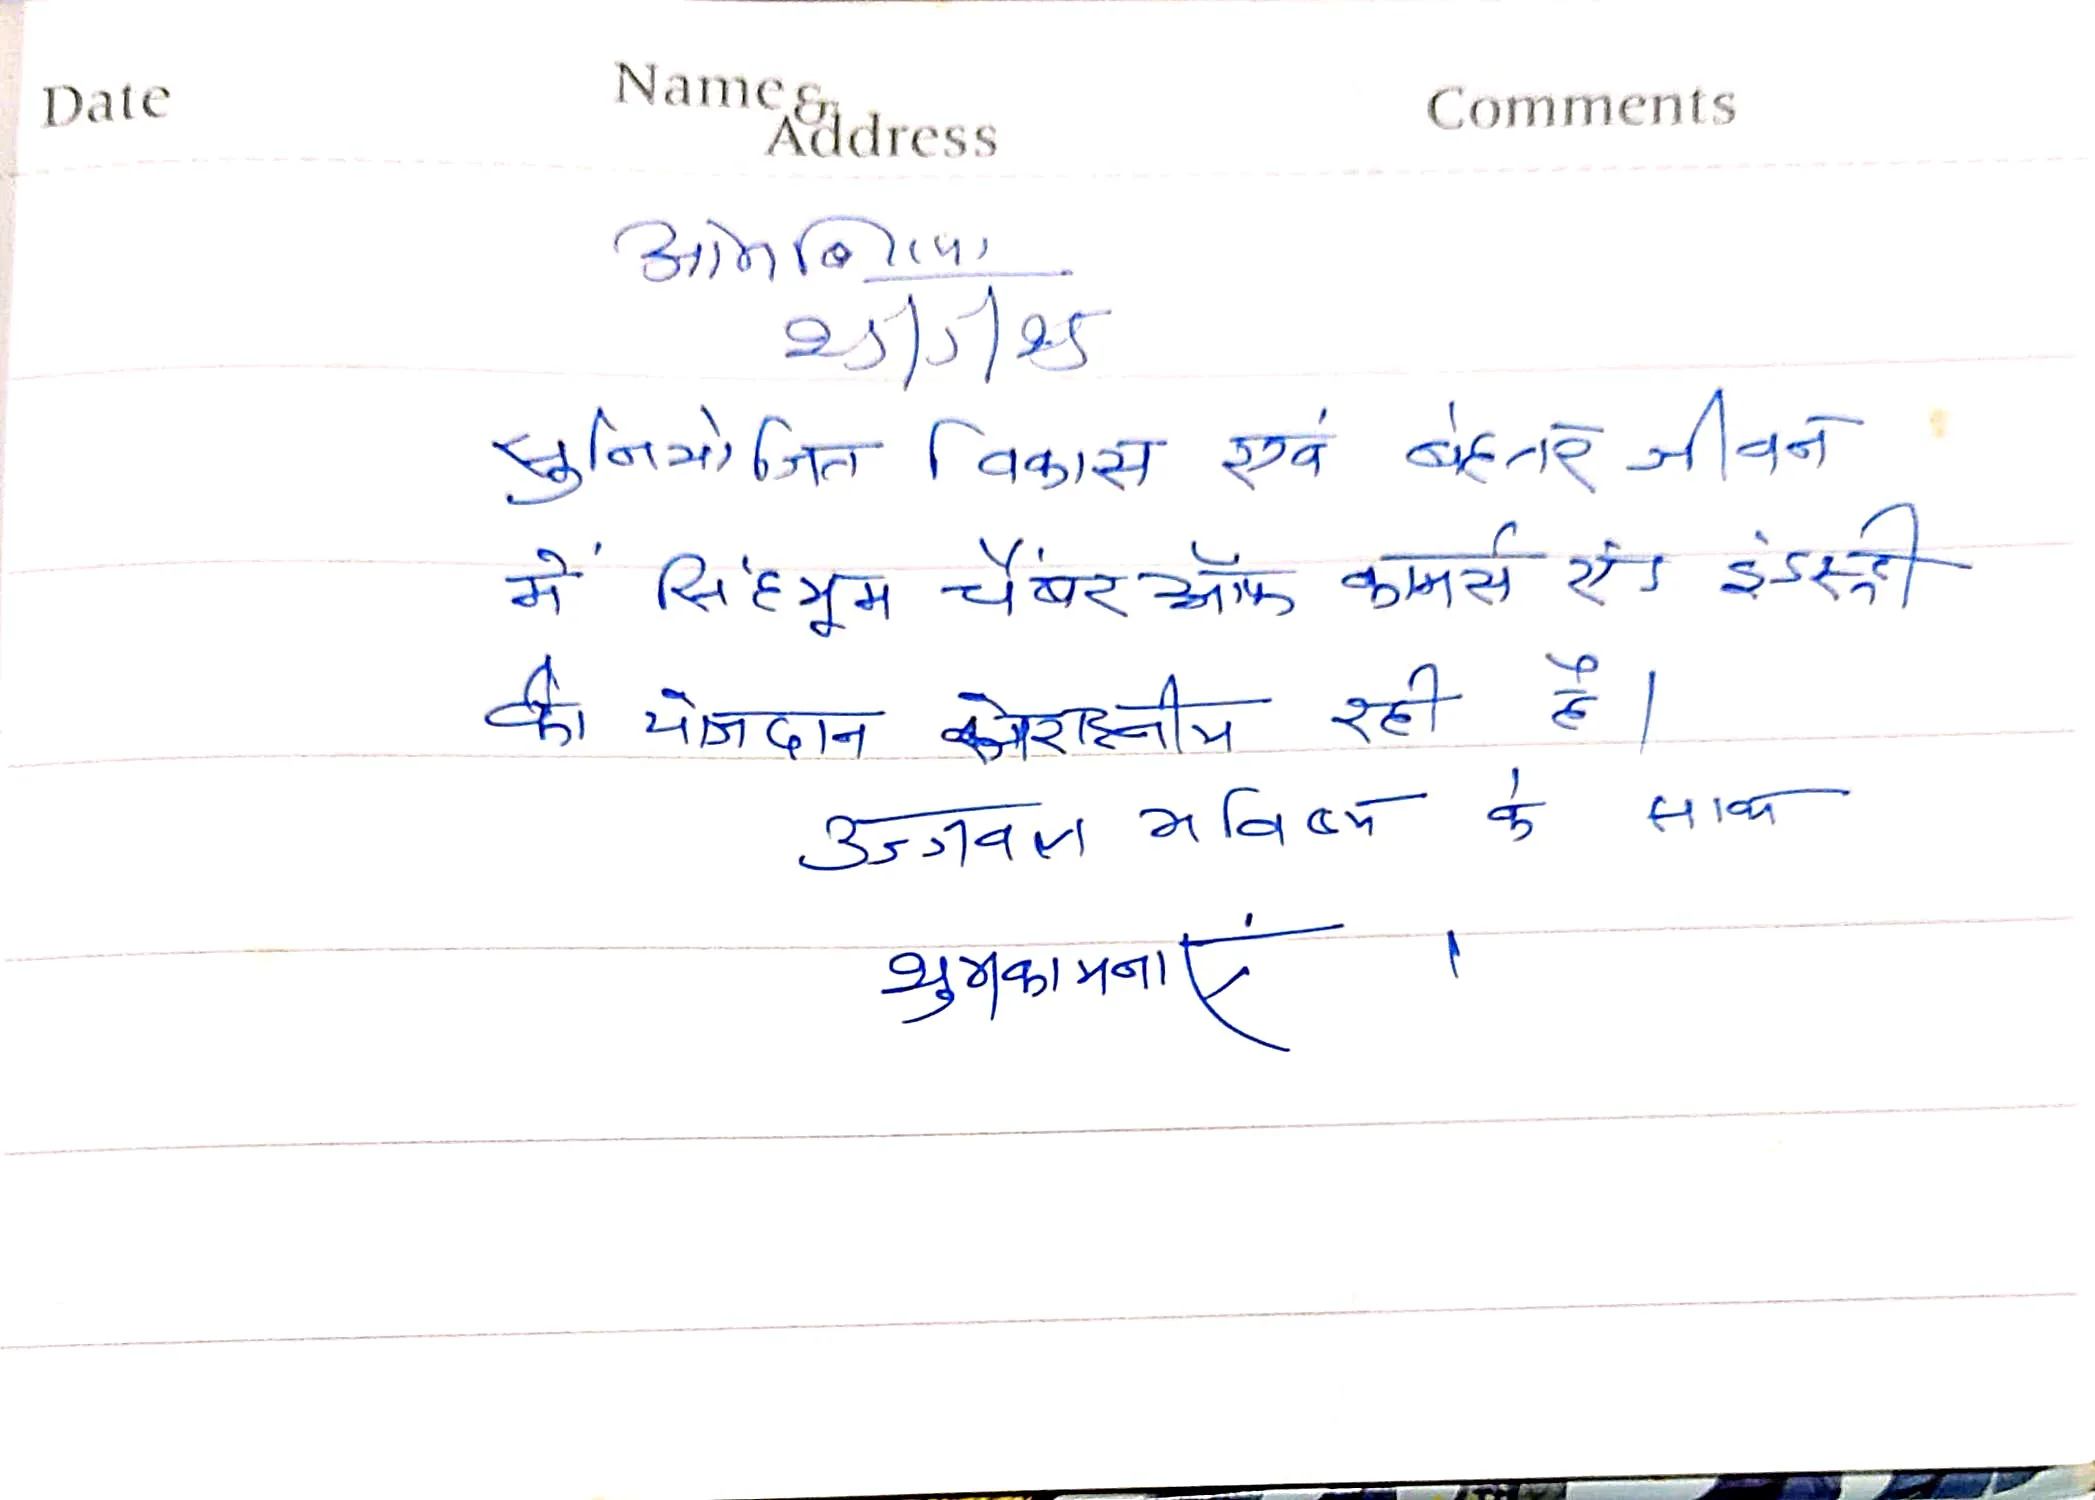 Date Name & Address Comments
25/5/25
सुनियोजित विकास एवं बेहतर जीवन
में सिंहभूम चैंबर ऑफ कामर्स एंड इंडस्ट्री
की योगदान सराहनीय रही है।
उज्जवल भविष्य के साथ
शुभकामनाएं ।